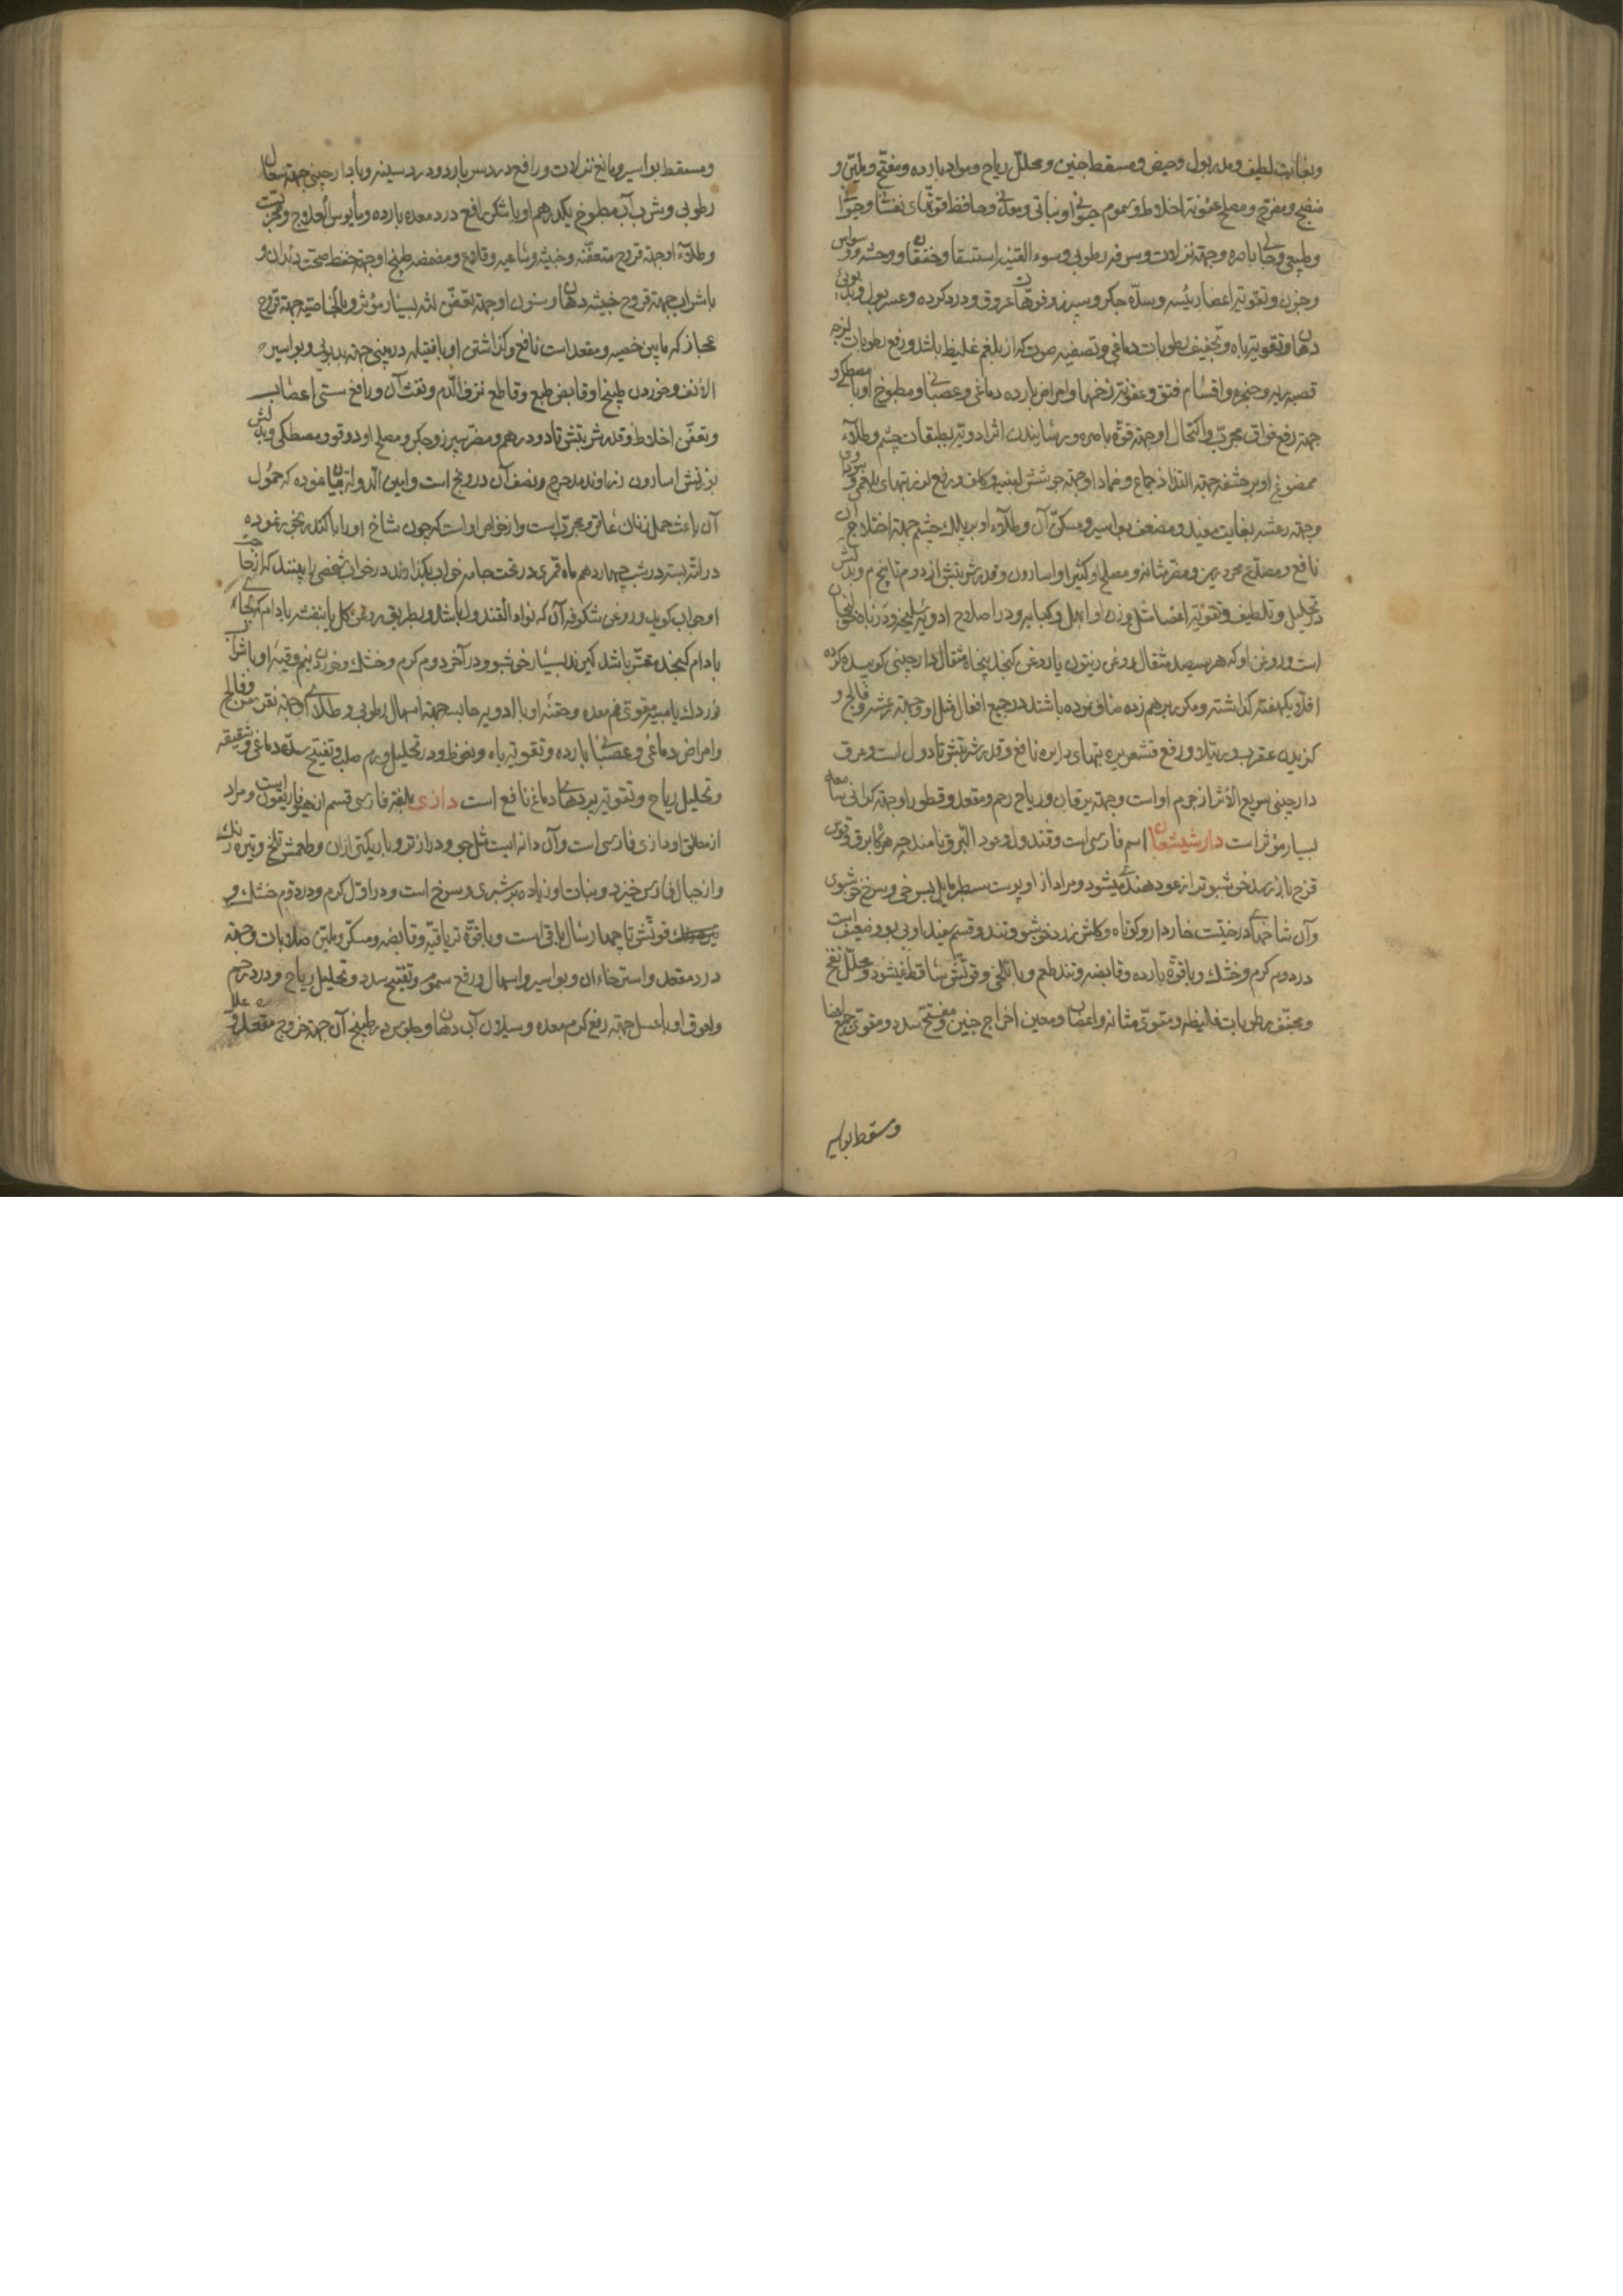 وبغایت لطیف و مدر بول و حیض و مسقط جنین و محلل ریاح و مواد بارده و مفتح و ملین و
منضج و مفرح و مصلح عفونة اخلاط و سموم حیوانی و نباتی و معدنی و حافظ قوتهای نفسانی و حیوانی
و طبیعی و جالی باصره و جهة نزلات و سرفه رطوبی و سوء القنیه و استسقا و خفقان و وحشة و وسواس
و جنون و تقویة اعضا رئیسه و سده جکر و سپرز و فوهات عروق و درد کرده و عسر بول و بدبوئی
دهان و تقویة باه و تجفیف رطوبات دماغی و تصفیه صوت که از بلغم غلیظ باشد و رفع رطوبات لزجه
قصبه ریه و حنجره و اقسام فتق و عفونة زخمها و امراض بارده دماغی و عصبانی و مطبوخ او با مصطکی
جهة رفع فواق مجرب و اکتحال او جهة قوة باصره و رسانیدن اثر ادویه بطبقات چشم و طلاء
ممضوغ او بر حشفه جهة التذاذ جماع و ضماد او جهة جوشش لبنیه و کلف و رفع لرز تبهای بلغمی و سوداوی
و جهة رعشه بغایت مفید و مضعف بواسیر و مسکن آن و طلاء او بر پلک چشم جهة اختلاج آن
نافع و مصدع محرورین و مضر مثانه و مصلح او کتیرا و اسارون و قدر شربتش از دو درم تا پنج درم و بدلش
در تحلیل و تلطیف و تقویة اعضا مثل وزن او ابهل و کبابه و در اصلاح ادویه سلیخه و در باه خولنجان
است و روغن او که هر سیصد مثقال روغن زیتون یا روغن کنجد پنجاه مثقال دارچینی کوبیده کرده
اقلا یکهفته کذاشته و مکرر بر هم زده صاف نموده باشند در جمیع افعال مثل او و جهة رعشه و فالج و
کزیدن عقرب و رتیلا و رفع قشعریره تبهای دایره نافع و قدر شربتش تا دو است و عرق
دارچینی سریع الاثر از جرم او است و جهة یرقان و ریاح رحم و مقعد و قطور او جهة کرانی سامعه
بسیار مؤثر است دارشیشعان اسم فارسی است و قندول و عود البرق نامند چه هرکاه برق و قوس
قزح باو رسد خوشبوتر از عود هندی میشود و مراد از او پوست سطبر مایل بسرخی و سرخ خوشبوی
و آن شاخهای درختیست خاردار و کوتاه و کلش زرد و خوشبو و تند و قسم سفید او بی بو و ضعیف است
در دوم کرم و خشک و با قوة بارده و قابضه و تند طعم و با تلخی و قوتش ساقط نمیشود و محلل نفخ
و مجفف رطوبات غلیظه و مقوی مثانه و اعصاب و معین اخراج جنین و مفتح سدد و مقوی جمیع اعضا
ومسقط بواسیر
و مسقط بواسیر و مانع نزلات و رافع درد سر بارد و درد سینه و با دارچینی جهة سعال
رطوبی و شرب آب مطبوخ یکدرهم او با شکر رافع درد معده بارده و مأیوس العلاج و مجربست
و طلاء او جهة قروح متعفنه و خبیثه و ساعیه و قلاع و مضمضه طبیخ او جهة حفظ صحت دندان و
با شراب جهة قروح خبیثه دهان و سنون او جهة تعفن لثه بسیار مؤثر و بالخاصیه جهة قروح
عجاز که مابین خصیه و مقعد است نافع و کذاشتن او با فتیله در بینی جهة بدبویی و بواسیر
الانف و خوردن طبیخ او قابض طبع و قاطع نزف الدم و نفث آن و رافع سستی اعصاب
و تعفن اخلاط و قدر شربتش تا دو درهم و مضر سپرز و جکر و مصلح او دوقو و مصطکی و بدلش
بوزنش اسارون زراوند مدحرج و نصف آن درونج است و امین الدولة بیان نموده که حمول
آن باعث حمل زنان عاقر و مجرب است و از خواص او است که چون شاخ او را با کندر بخور نموده
در لته بسته در شب چهاردهم ماه قمری در تحت جامه خواب بکذارند در خواب شخصی را بینند که از حاجت
او جواب کوید و روغن شکوفه آن که نوار القندول باشد و بطریق روغن کل یا بنفشه با بادام که بجای
بادام کنجد مقشر باشد کیرند بسیار خوشبو و در آخر دوم کرم و خشک و خوردن نیم وقیه او با شراب
زردک یا میبه مقوی فم معده و حقنه او با ادویه حابسه جهة اسهال رطوبی و طلای او جهة نقرس و فالج
و امراض دماغی و عصبانی بارده و تقویة باه و نعوظ و در تحلیل ورم صلب و تفتیح سده دماغی و شقیقه
و تحلیل ریاح و تقویة پردهای دماغ نافع است دازی بلغة فارسی قسم از هیوفاریقون است و مراد
از مطلق او دازی فارسی است و آن دانه ایست مثل جو و درازتر و باریکتر ازان و طعمش تلخ و تیره رنک
و از جبال فارس خیزد و نبات او زیاده بر شبری و سرخ است و در اول کرم و در دوم خشک و
قوتش تا چهار سال باقی است و با قوة تریاقیه و قابضه و مسکن و ملین صلابات و جهة
درد مقعد و استرخاء آن و بواسیر و اسهال و رفع سموم و تفتیح سدد و تحلیل ریاح و درد رحم
و لعوق او با عسل جهة رفع کرم معده و سیلان آب دهان و جلوس در طبیخ آن جهة خروج مقعد و